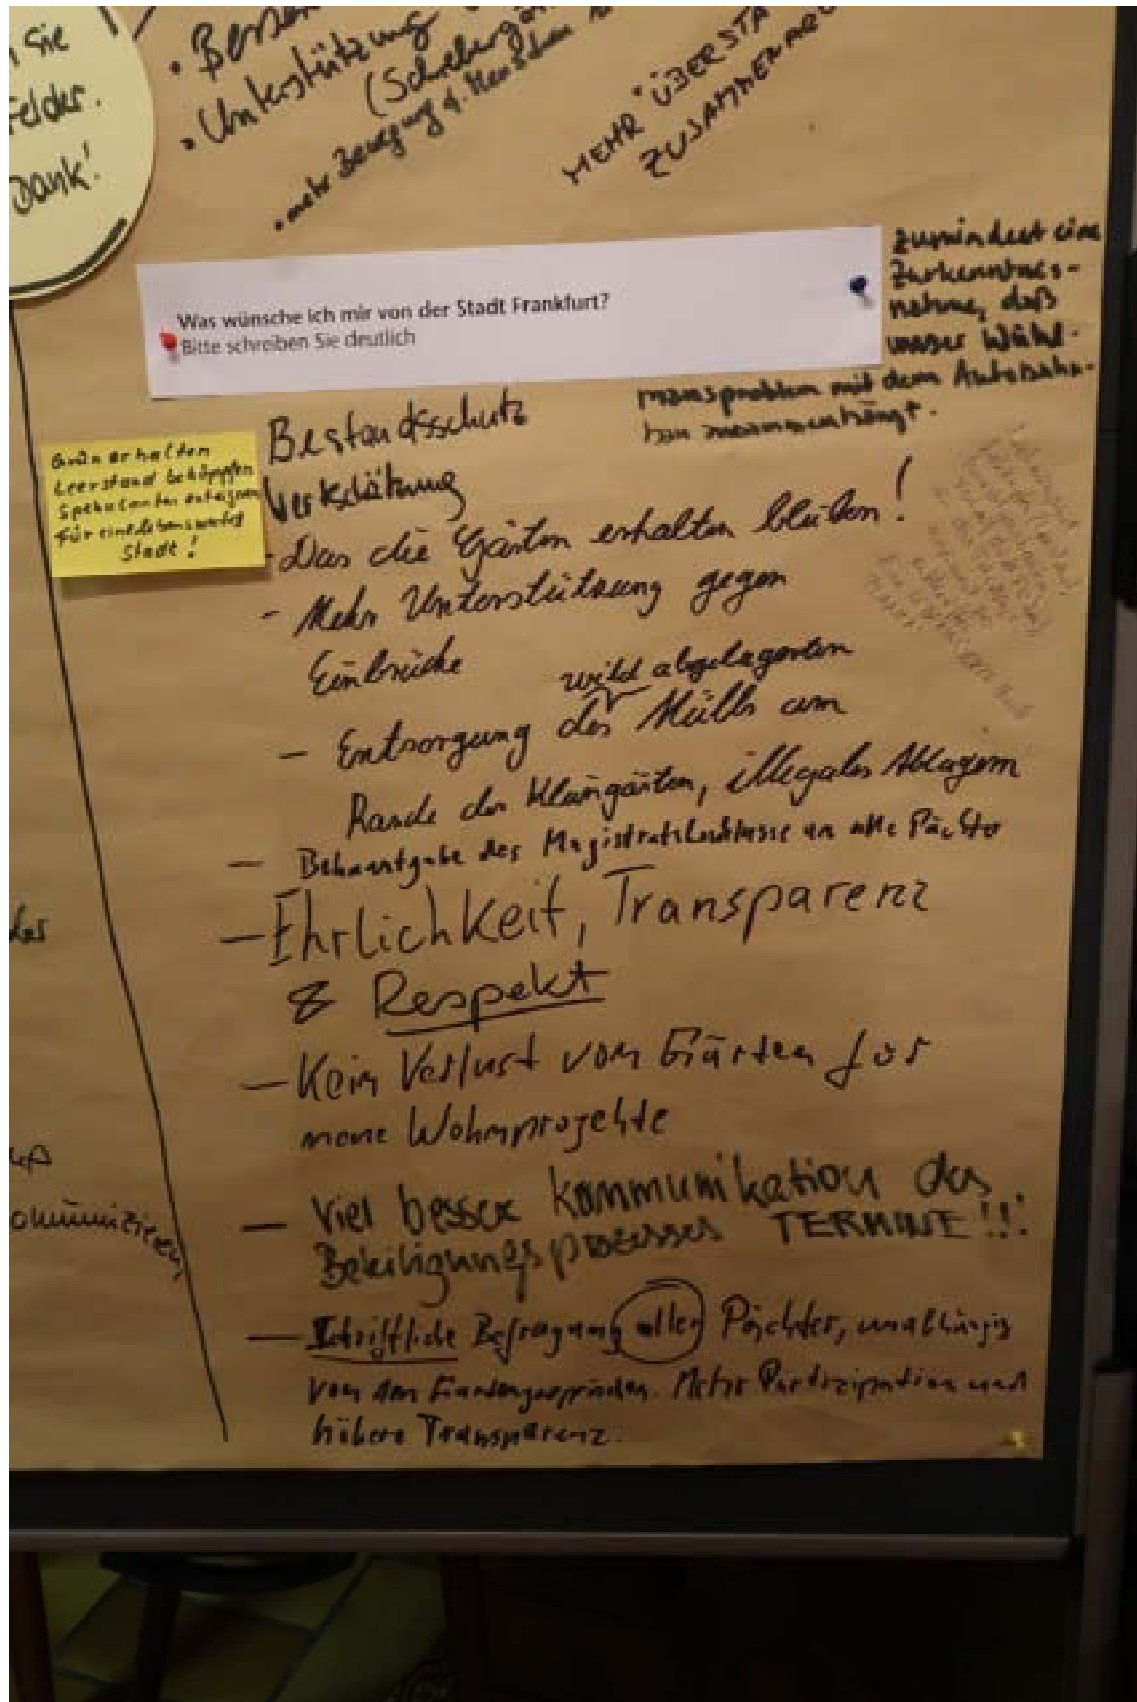 Sie
felder.
Dank!
• Unterstützung
• mehr Bewegung d. Menschen
MEHR ÜBERSTA
ZUSAMMENAR
Was wünsche ich mir von der Stadt Frankfurt?
Bitte schreiben Sie deutlich
zumindest eine
Zurkenntnis-
nahme, daß
unser Wühl-
mausproblem mit dem Autobahn-
bau zusammenhängt.
Grün erhalten
Leerstand bekämpfen
Spekulanten enteignen
für eine lebenswerte
Stadt!
Bestandsschutz
- Das die Gärten erhalten bleiben!
- Mehr Unterstützung gegen
Einbrüche
wild abgelagerten
- Entsorgung des Mülls am
Rande der Kleingärten, illegales Ablagern
- Bekanntgabe des Magistratsbeschlusse an alle Pächter
- Ehrlichkeit, Transparenz
& Respekt
- Kein Verlust von Gärten für
Wohnprojekte
- Viel besser kommunikation des
Beteiligungsprozesses TERMINE!!!
- Schriftliche Befragung aller Pächter, unabhängig
von den Gartengesprächen. Mehr Partizipation und
höhere Transparenz.